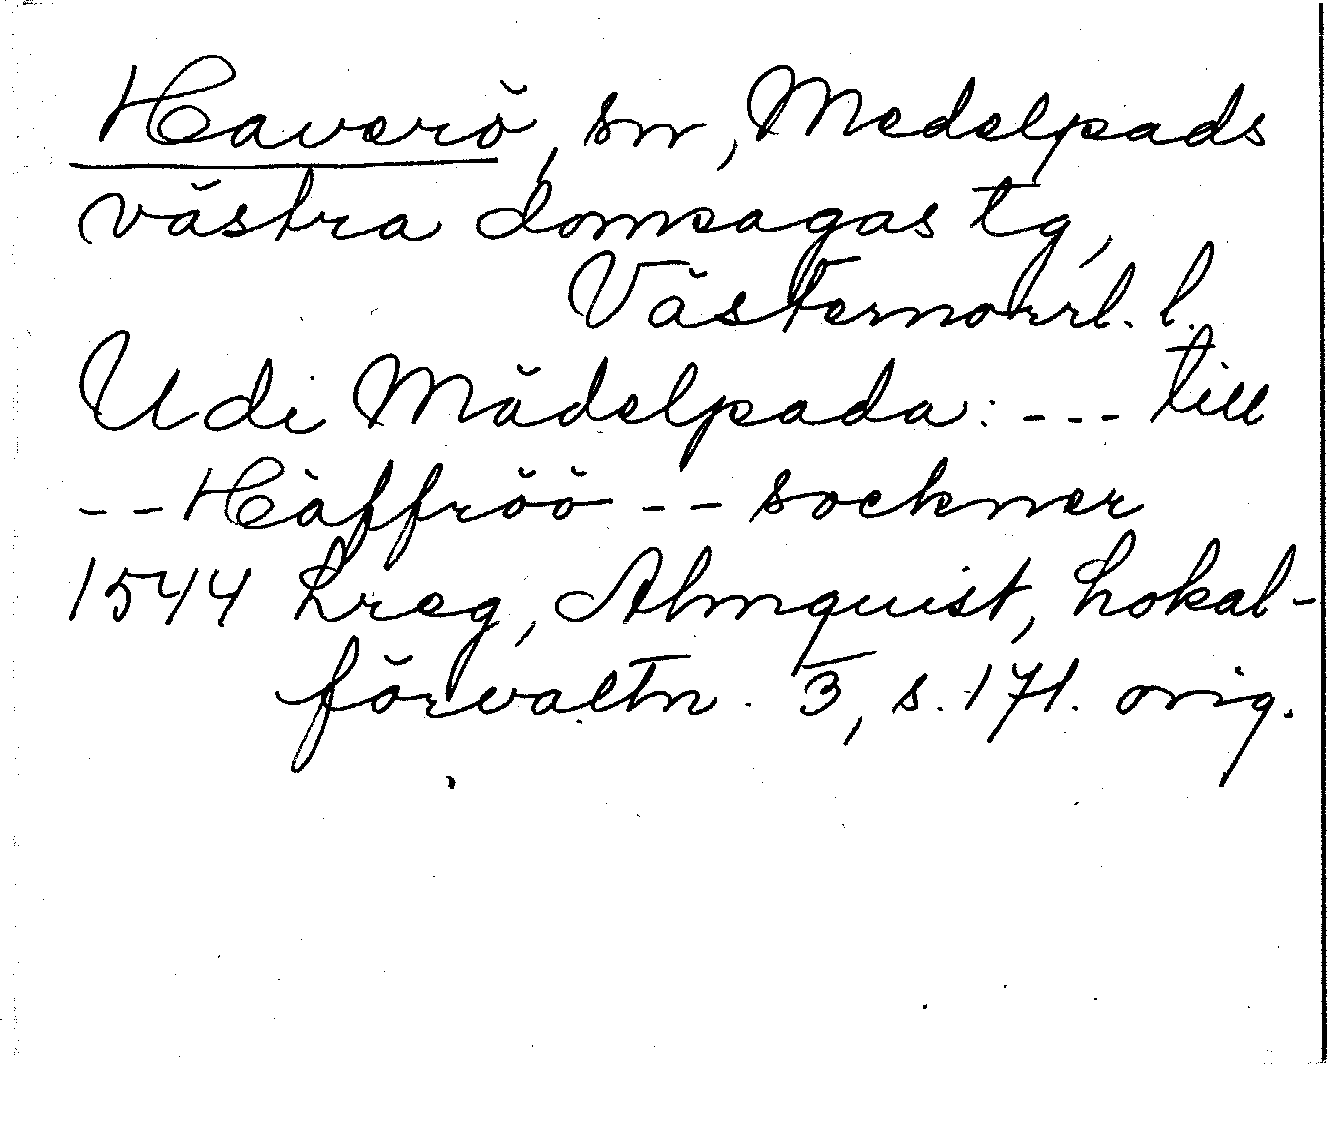 Haverö, sn, Medelpads
västra domsagas tg,
Västernorrl. l.
Udi Mädelpada: --- till
-- Håffröö -- sockner
1544 Lreg, Almquist, Lokal-
förvaltn. 3, s. 171. orig.